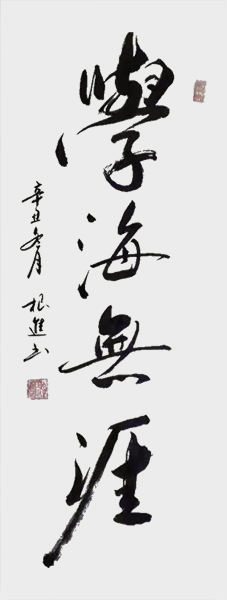 學海無涯
辛丑冬月 根進书